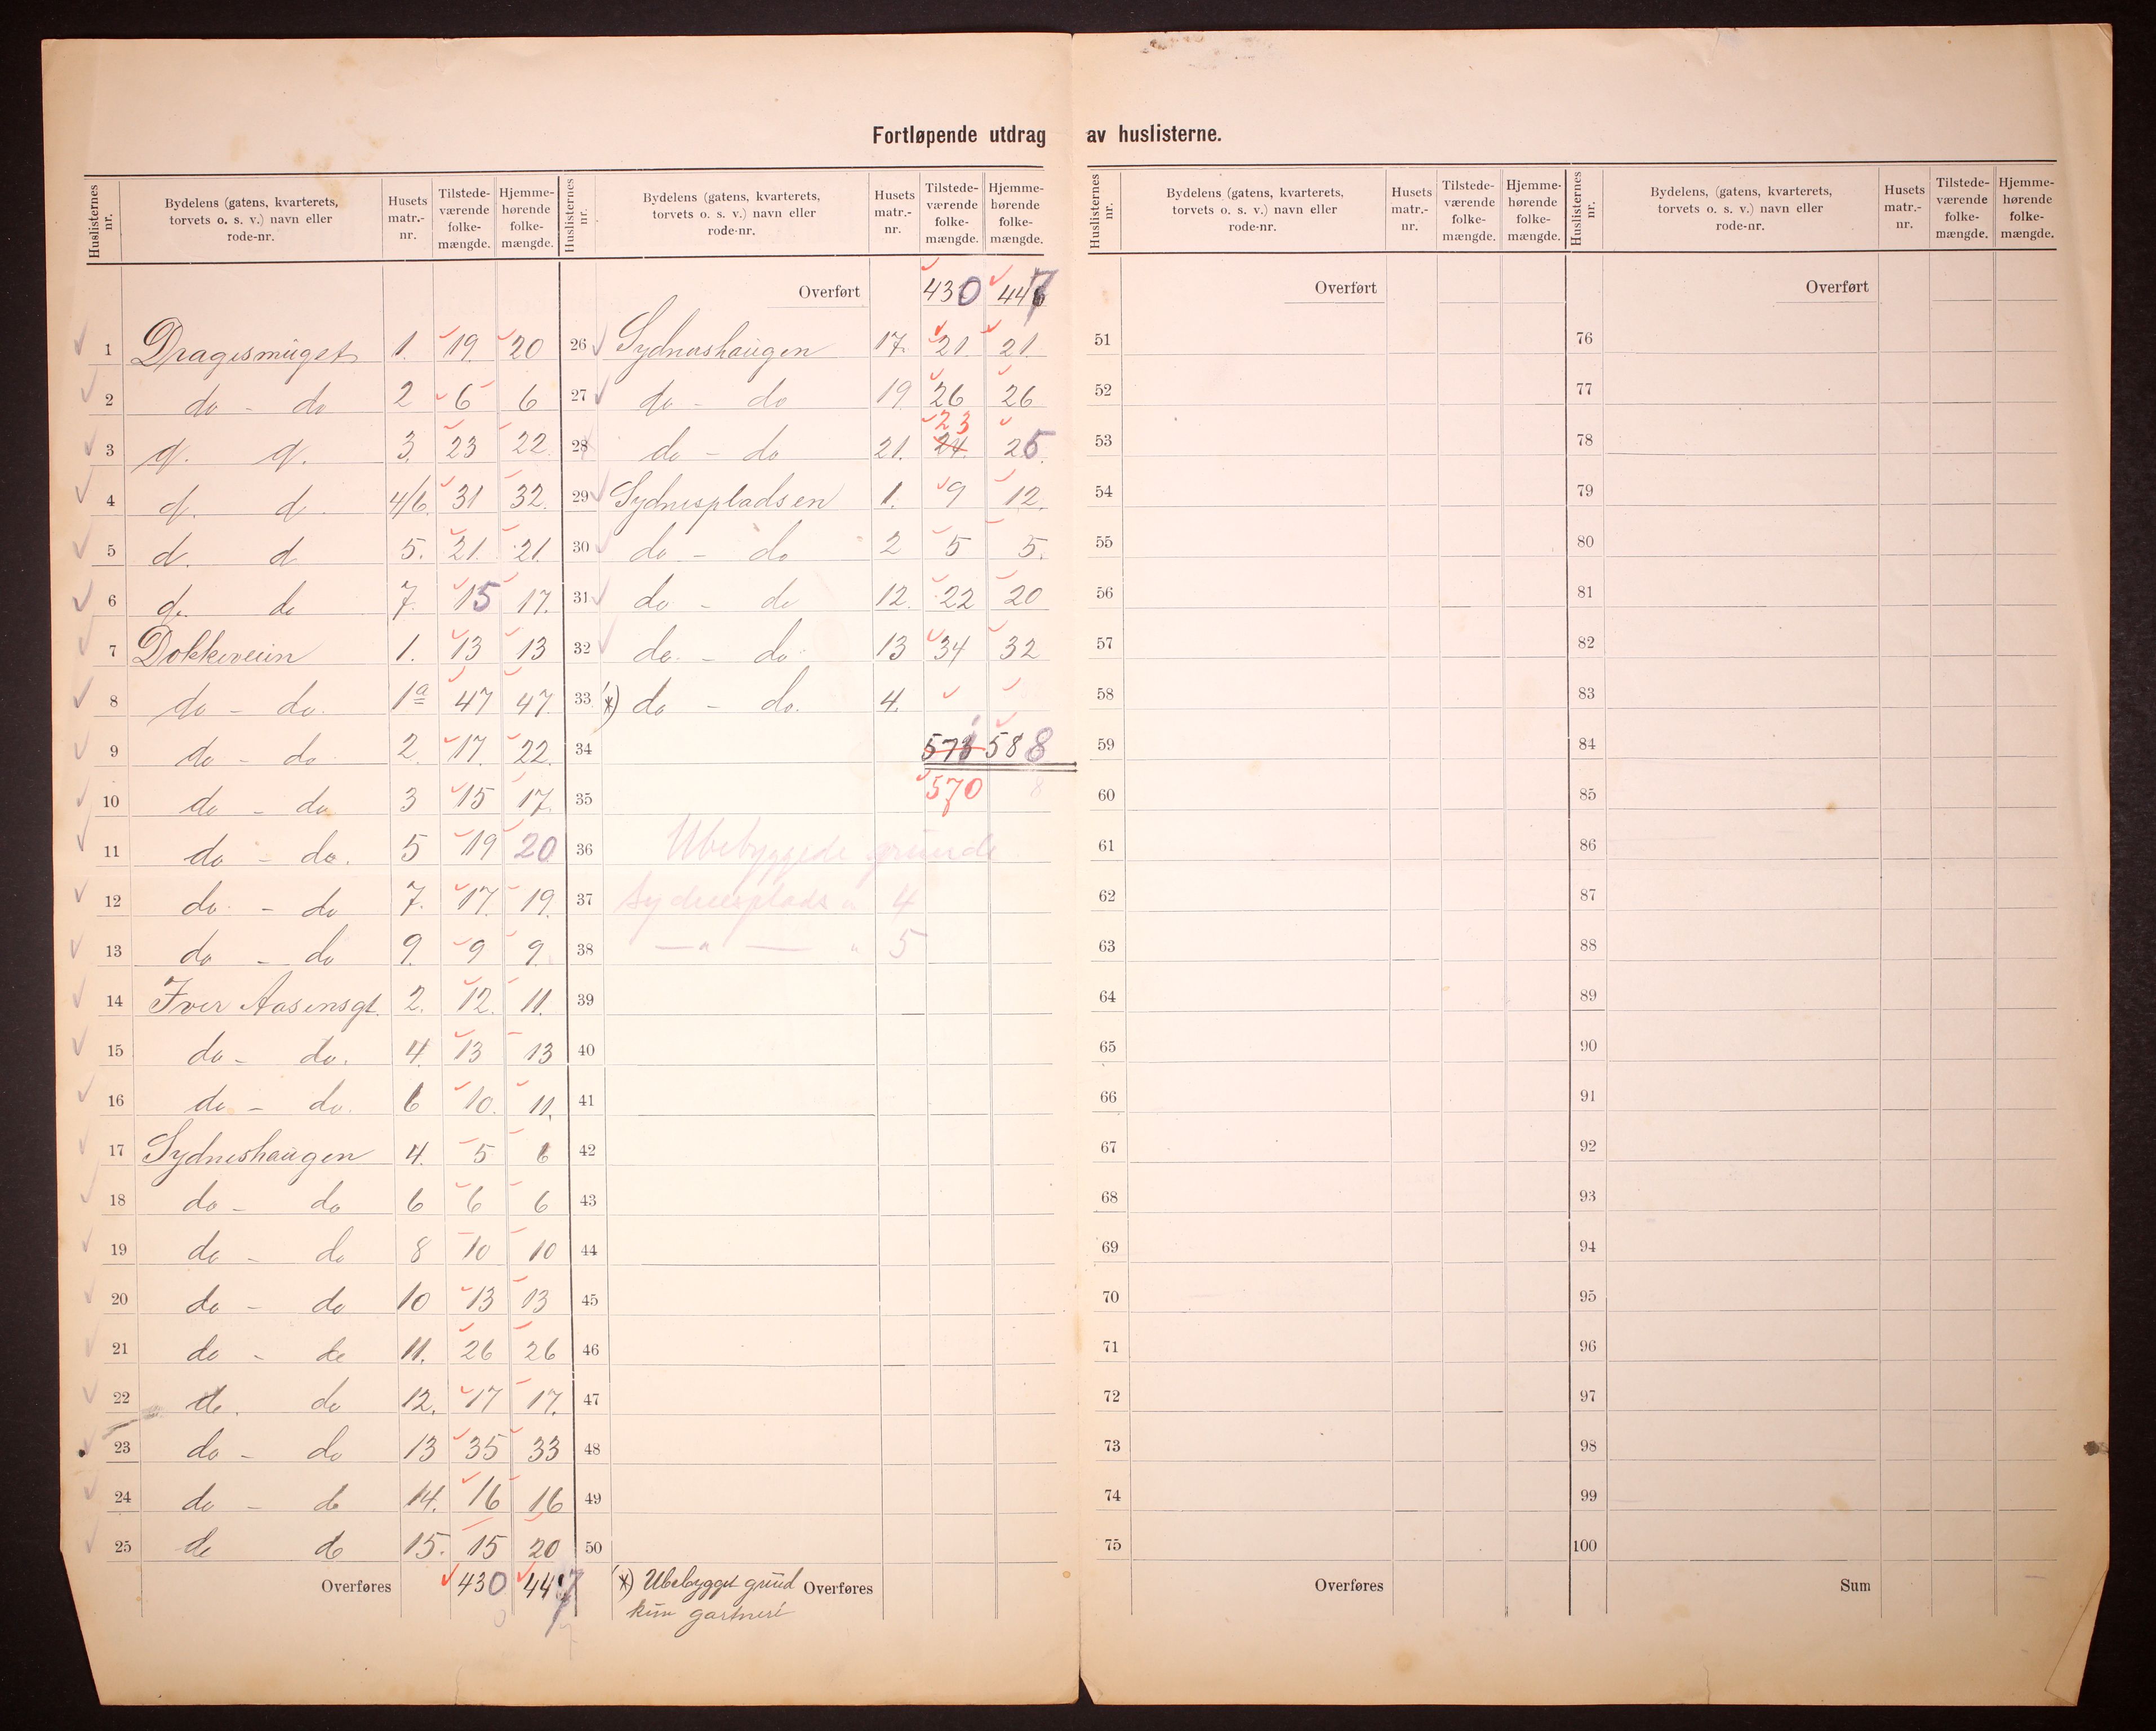 Fortløpende utdrag av huslisterne.
Huslisternes nr. Bydelens (gatens, kvarterets, torvets o. s. v.) navn eller rode-nr. Husets matr.-nr. Tilstede-værende folke-mængde. Hjemme-hørende folke-mængde.
1 Dragesmuget 1. 19. 20
2 do - do 2 6 6
3 d. d. 3. 23 22.
4 d. d. 4/6. 31 32.
5 d. d 5. 21. 21.
6 d. do 7. 15 17.
7 Dokkeveien 1. 13 13
8 do - do. 1a 47 47.
9 do - do 2. 17. 22.
10 do - do 3 15 17.
11 do - do. 5 19 20
12 do - do 7. 17. 19.
13 do - do 9. 9 9.
14 Iver Aasensgt. 2. 12. 11.
15 do - do. 4. 13 13
16 do - do. 6 10. 11.
17 Sydneshaugen 4. 5 6
18 do - do 6 6 6
19 do - do 8 10 10
20 do - do 10 13 13
21 do - do 11. 26 26
22 do. do 12. 17 17.
23 do - do 13 35 33
24 do - do 14. 16 16
25 do do 15. 15 20
Overføres 430 447
Huslisternes nr. Bydelens (gatens, kvarterets, torvets o. s. v.) navn eller rode-nr. Husets matr.-nr. Tilstede-værende folke-mængde. Hjemme-hørende folke-mængde.
Overført 430 447
26 Sydneshaugen 17. 21. 21.
27 do - do 19. 26 26
23
28 do - do 21. 24. 25.
29 Sydnespladsen 1. 9 12.
30 do - do 2 5 5.
31 do - do 12. 22 20
32 do. - do 13 34 32
33 *) do - do. 4.
34 571 588
35 570
36 Ubebyggede grunde
37 Sydnesplads " 4
38 — " — " 5
39
40
41
42
43
44
45
46
47
48
49
50
*) Ubebygget grund Overføres
kun gartneri
Huslisternes nr. Bydelens (gatens, kvarterets, torvets o. s. v.) navn eller rode-nr. Husets matr.-nr. Tilstede-værende folke-mængde. Hjemme-hørende folke-mængde.
Overført
51
52
53
54
55
56
57
58
59
60
61
62
63
64
65
66
67
68
69
70
71
72
73
74
75
Overføres
Huslisternes nr. Bydelens, (gatens, kvarterets, torvets o. s. v.) navn eller rode-nr. Husets matr.-nr. Tilstede-værende folke-mængde. Hjemme-hørende folke-mængde.
Overført
76
77
78
79
80
81
82
83
84
85
86
87
88
89
90
91
92
93
94
95
96
97
98
99
100
Sum